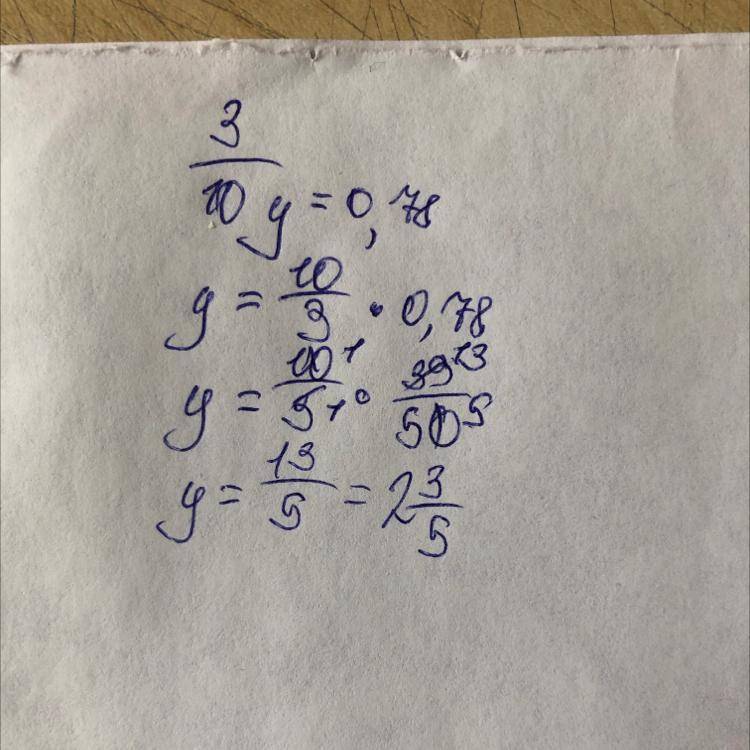 3/10 y = 0,78
y = 10/3 · 0,78
y = 10¹/3₁ · 39¹³/50⁵
y = 13/5 = 2 3/5